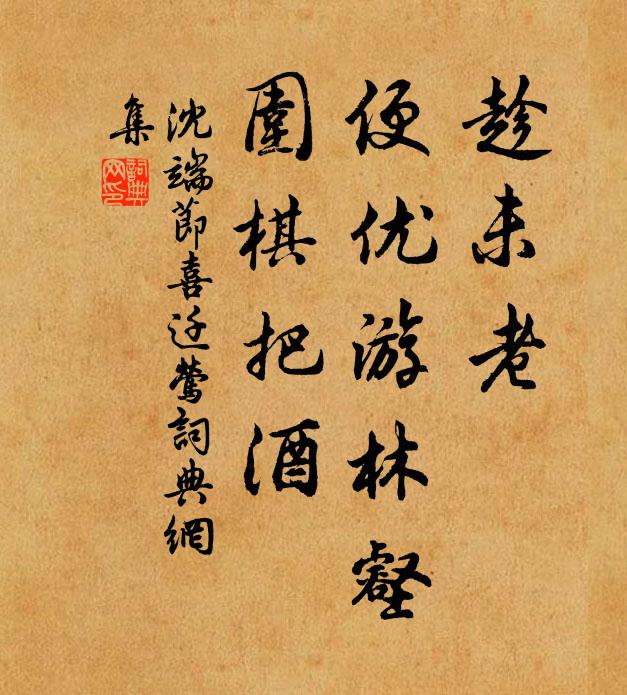 趁未老
便优游林壑
圍棋把酒
沈端節喜迁鶯詞典網
集
詞典
网印